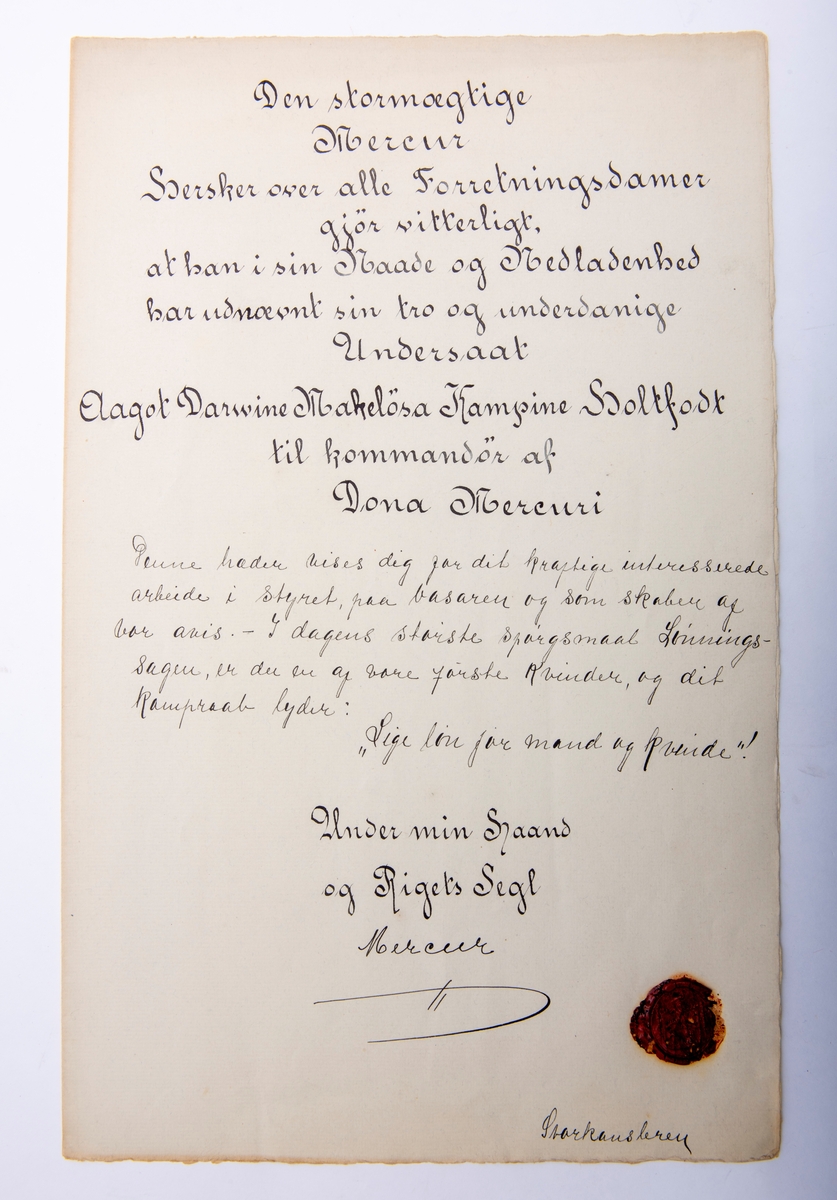 Den stormægtige
Mercur
Hersker over alle Forretningsdamer
gjör vitterligt,
at han i sin Naade og Nedladenhed
har udnævnt sin tro og underdanige
Undersaat
Aagot Darwine Makelösa Kampine Holtfodt
til kommandör af
Dona Mercuri
Denne hæder vises dig for dit kraftige interesserede
arbeide i styret, paa basaren og som skaber af
vor avis. – I dagens störste spörgsmaal Lönnings-
sagen, er du en af vore förste kvinder, og dit
kampraab lyder:
„Lige lön for mand og kvinde"!
Under min Haand
og Rigets Segl
Mercur
Storkansleren